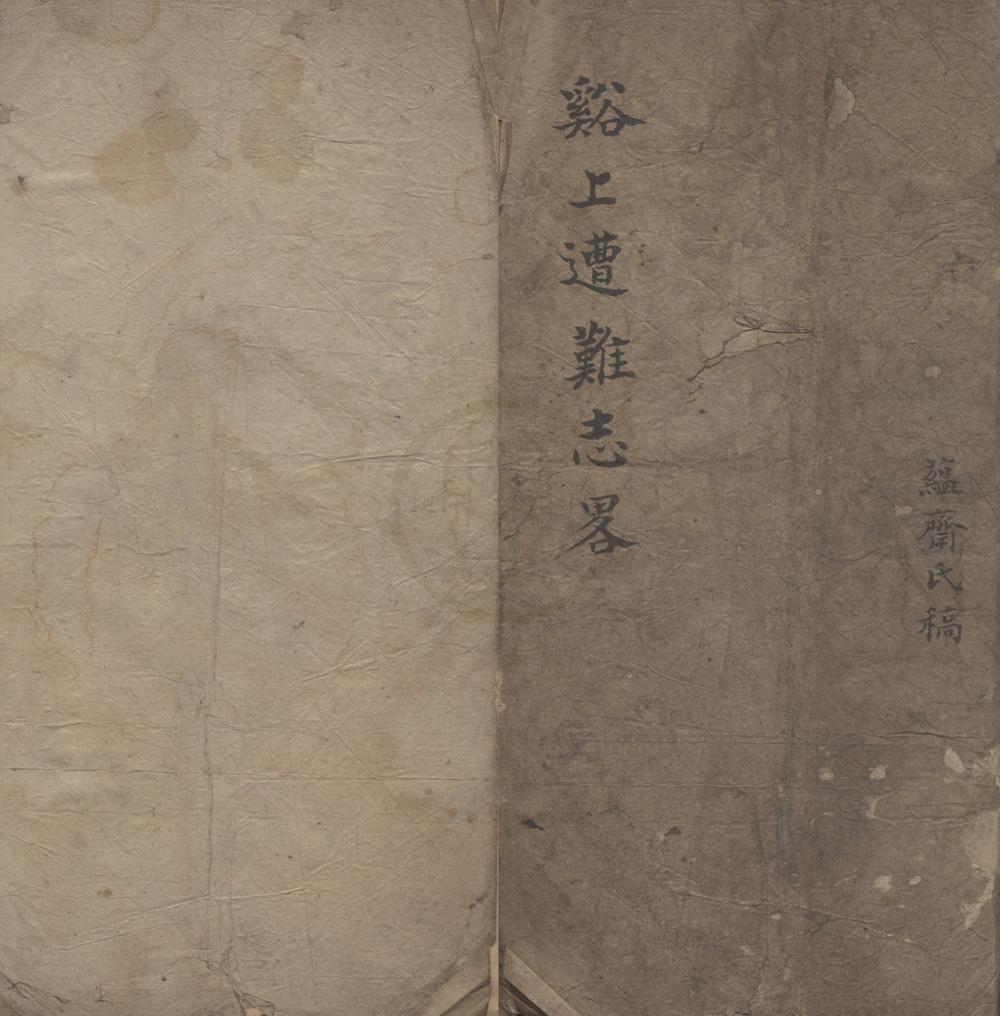 谿上遭難志畧
蘊齋氏稿